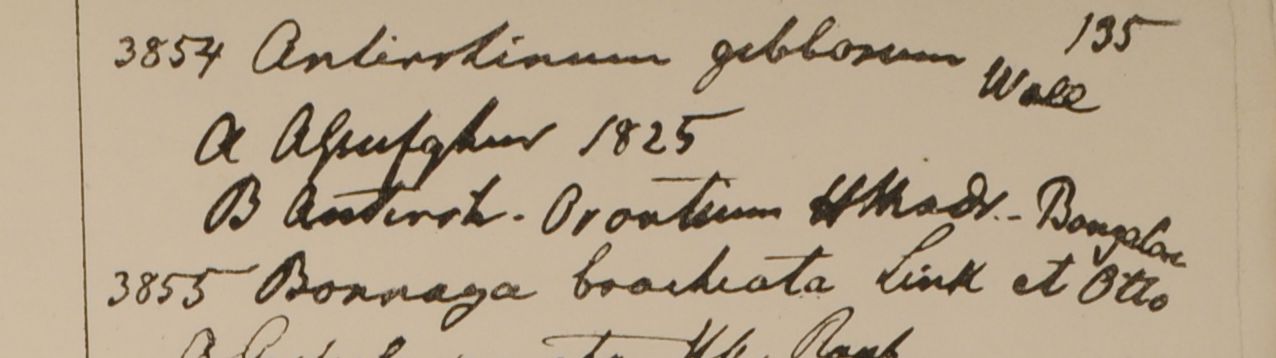 135
3854 Antirrhinum gibbosum Wall
A Azufghur 1825
B Antirrh. Orontium HMadr. - Bangalore
3855 Bonnaya brachiata Link et Otto
Roxb